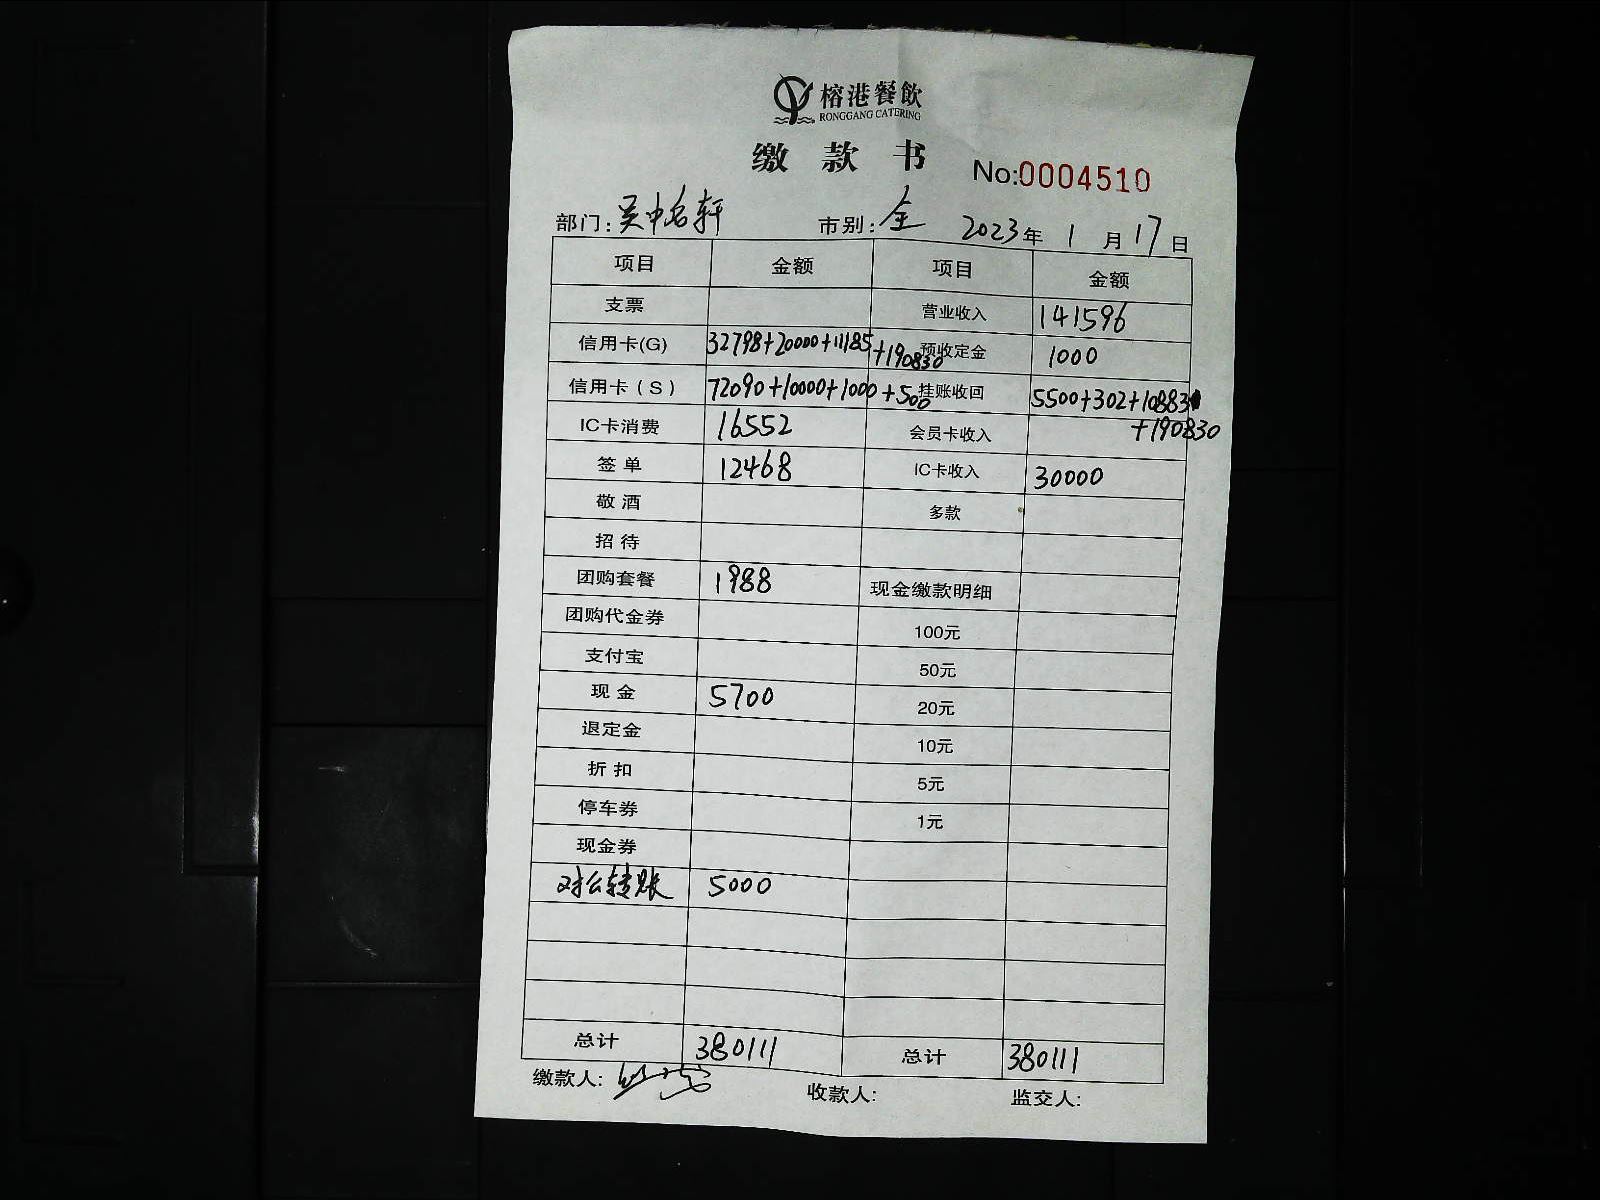 榕港餐飲
RONGGANG CATERING
缴款书
No:0004510
部门:吴中名轩 市别:全 2023年1月17日
项目 金额 项目 金额
支票 营业收入 141596
信用卡(G) 32798+20000+11185+190830 预收定金 1000
信用卡(S) 72090+10000+1000+500 挂账收回 5500+302+10883
+190830
IC卡消费 16552 会员卡收入
签单 12468 IC卡收入 30000
敬酒 多款
招待
团购套餐 1988 现金缴款明细
团购代金券 100元
支付宝 50元
现金 5700 20元
退定金 10元
折扣 5元
停车券 1元
现金券
对公转账 5000
总计 380111 总计 380111
缴款人: 收款人: 监交人: